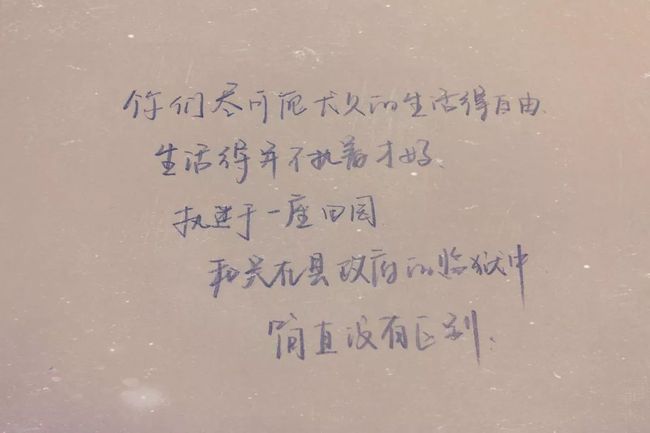 你们尽可能长久的生活得自由
生活得并不执着才好
执迷于一座田园
和关在县政府的监狱中
简直没有区别.